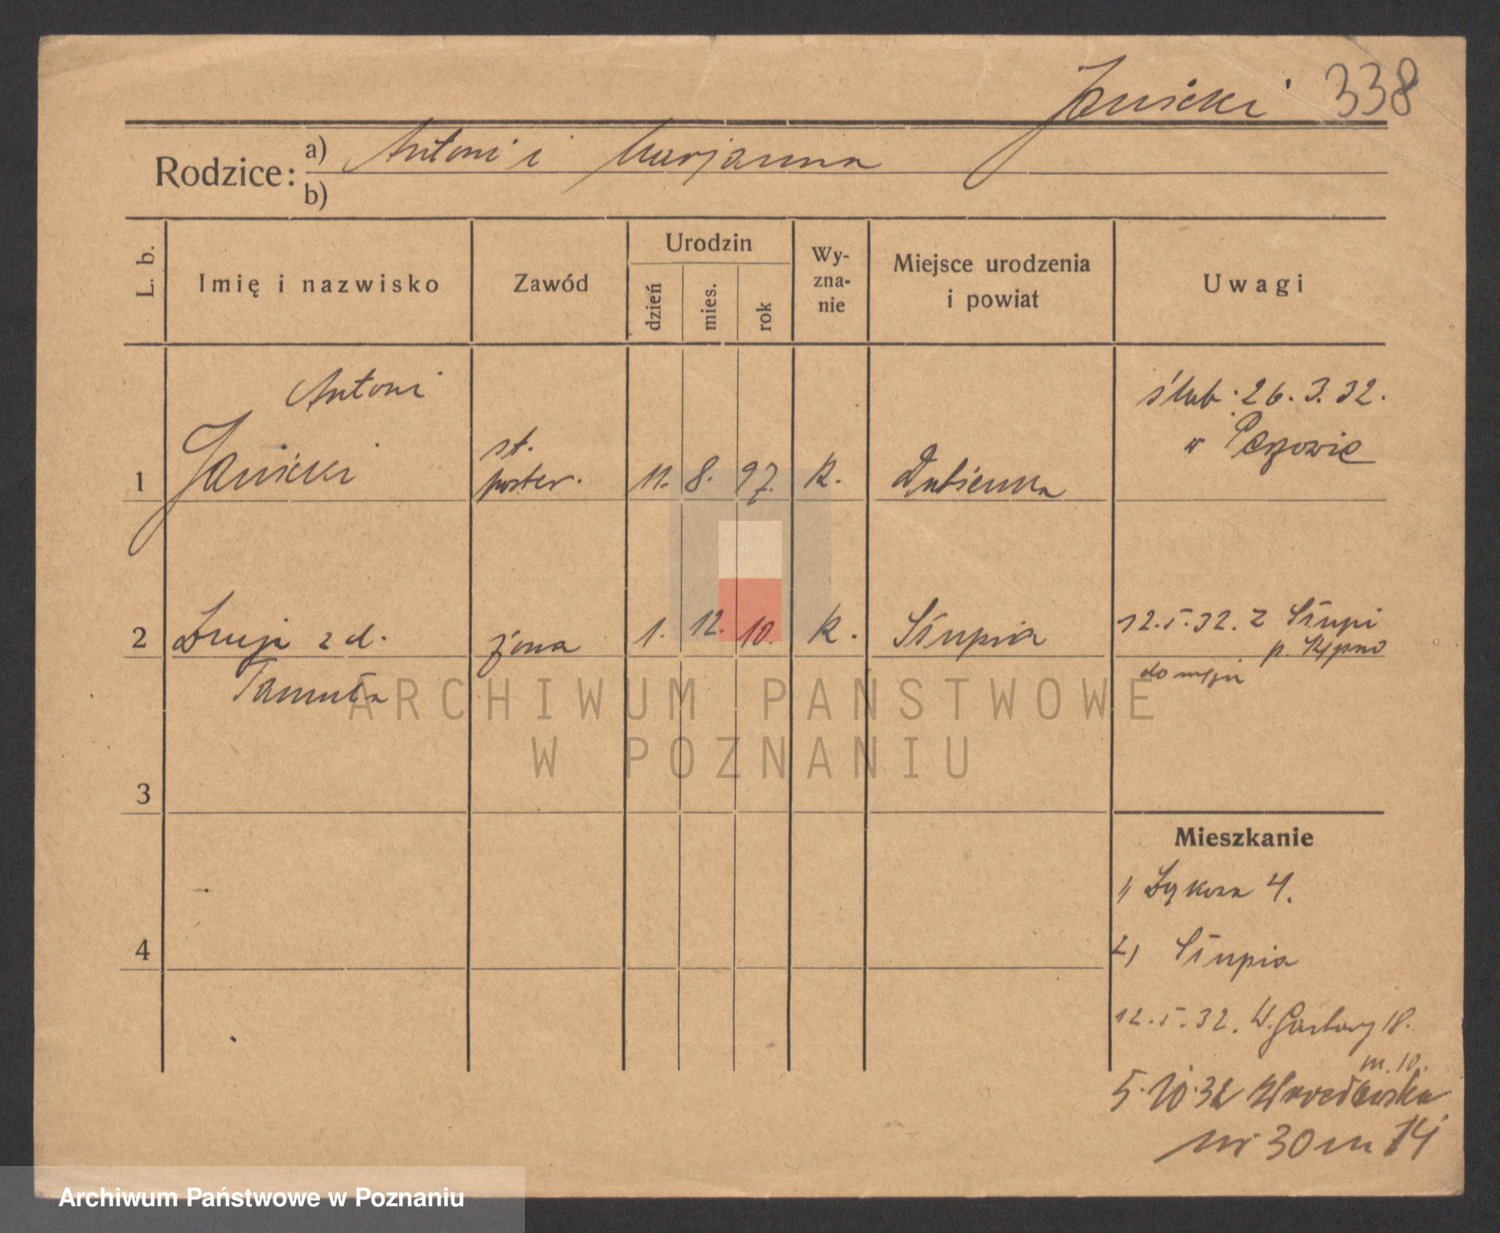 Janicki 338
Rodzice: a) Antoni i Marjanna
b)
L. b. Imię i nazwisko Zawód Urodzin dzień mies. rok Wy-zna-nie Miejsce urodzenia i powiat Uwagi
Antoni ślub 26.3.32.
1 Janicki st. poster. 11. 8. 97. R. Dubienka w
2 z d. żona 1. 12. 10. R. Słupia 12.5.32. z Słupi
p. Kępno
do męża
ARCHIWUM PAŃSTWOWE
W POZNANIU
3
Mieszkanie
1) 4.
4
2) Słupia
12.5.32. W. Garbary 18.
m. 10.
5.10.32
nr 30 m 14
Archiwum Państwowe w Poznaniu